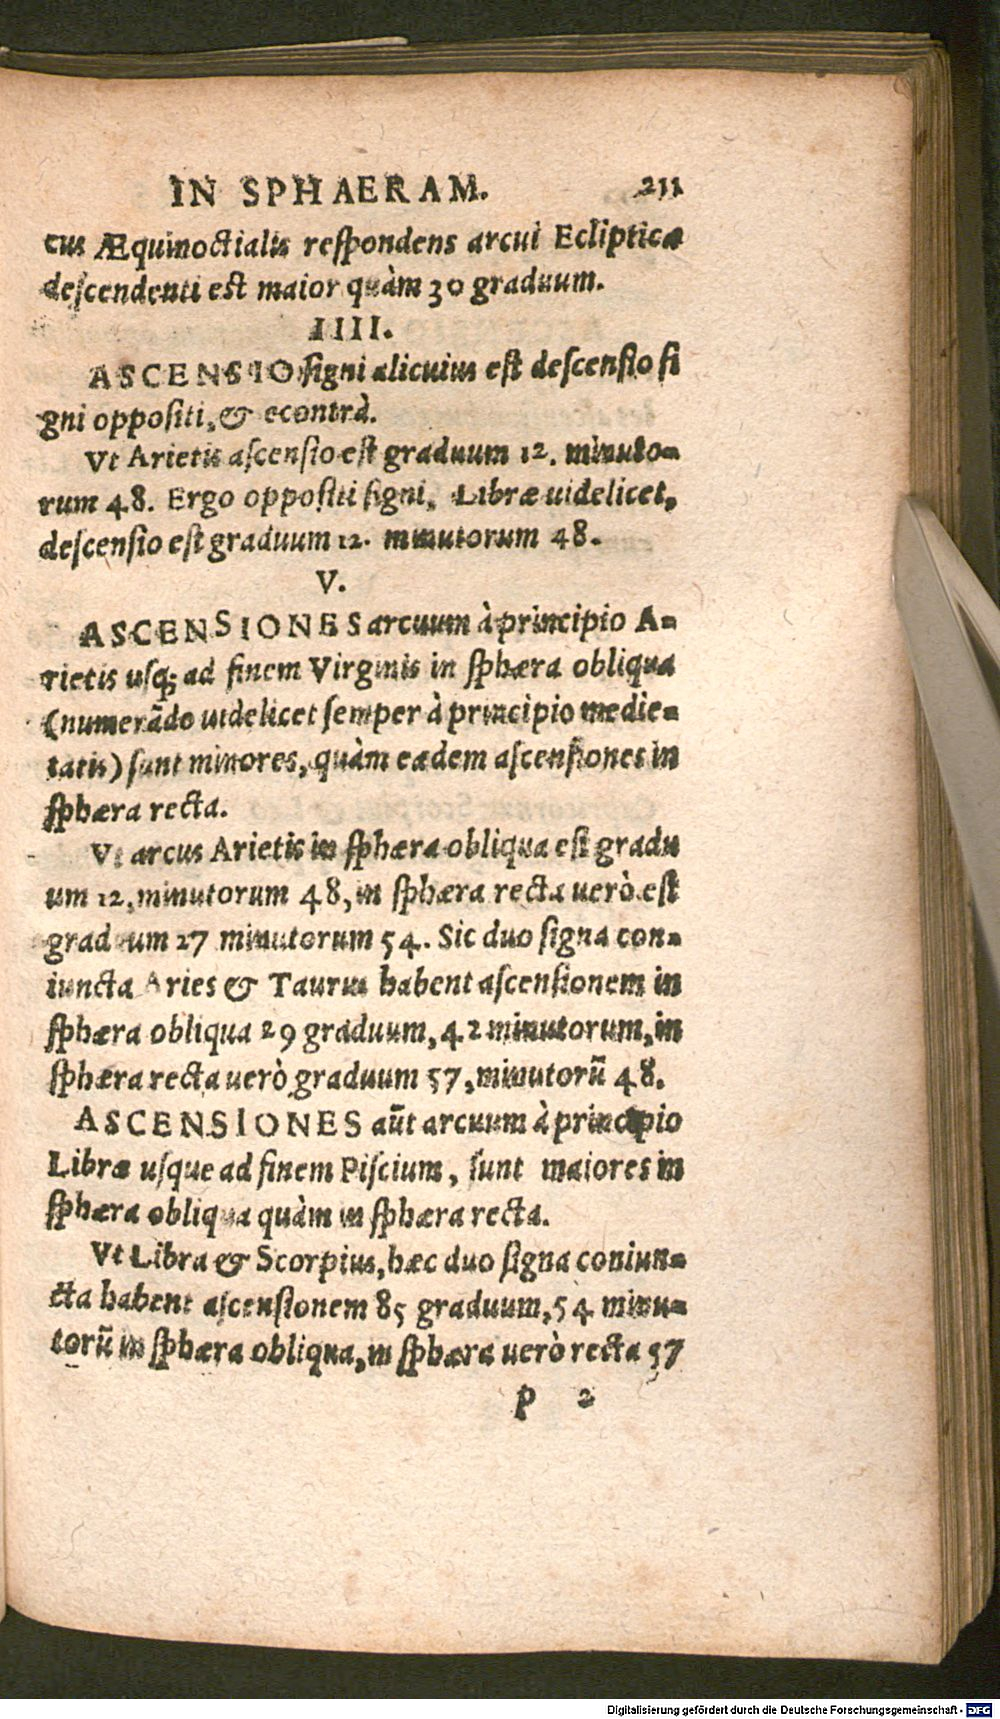 IN SPHAERAM. 211
cus Æquinoctialis respondens arcui Eclipticæ
descendenti est maior quàm 30 graduum.
IIII.
ASCENSIO signi alicuius est descensio si
gni oppositi, & econtrà.
Vt Arietis ascensio est graduum 12. minuto-
rum 48. Ergo oppositi signi, Libræ uidelicet,
descensio est graduum 12. minutorum 48.
V.
ASCENSIONES arcuum à principio A-
rietis usq; ad finem Virginis in sphæra obliqua
(numerãdo uidelicet semper à principio medie-
tatis) sunt minores, quàm eædem ascensiones in
sphæra recta.
Vt arcus Arietis in sphæra obliqua est gradu
um 12, minutorum 48, in sphæra recta uerò est
graduum 27 minutorum 54. Sic duo signa con-
iuncta Aries & Taurus habent ascensionem in
sphæra obliqua 29 graduum, 42 minutorum, in
sphæra recta uerò graduum 57, minutorũ 48.
ASCENSIONES aũt arcuum à principio
Libræ usque ad finem Piscium, sunt maiores in
sphæra obliqua quàm in sphæra recta.
Vt Libra & Scorpius, hæc duo signa coniun-
cta habent ascensionem 85 graduum, 54 minu-
torũ in sphæra obliqua, in sphæra uerò recta 57
P 2
Digitalisierung gefördert durch die Deutsche Forschungsgemeinschaft - DFG